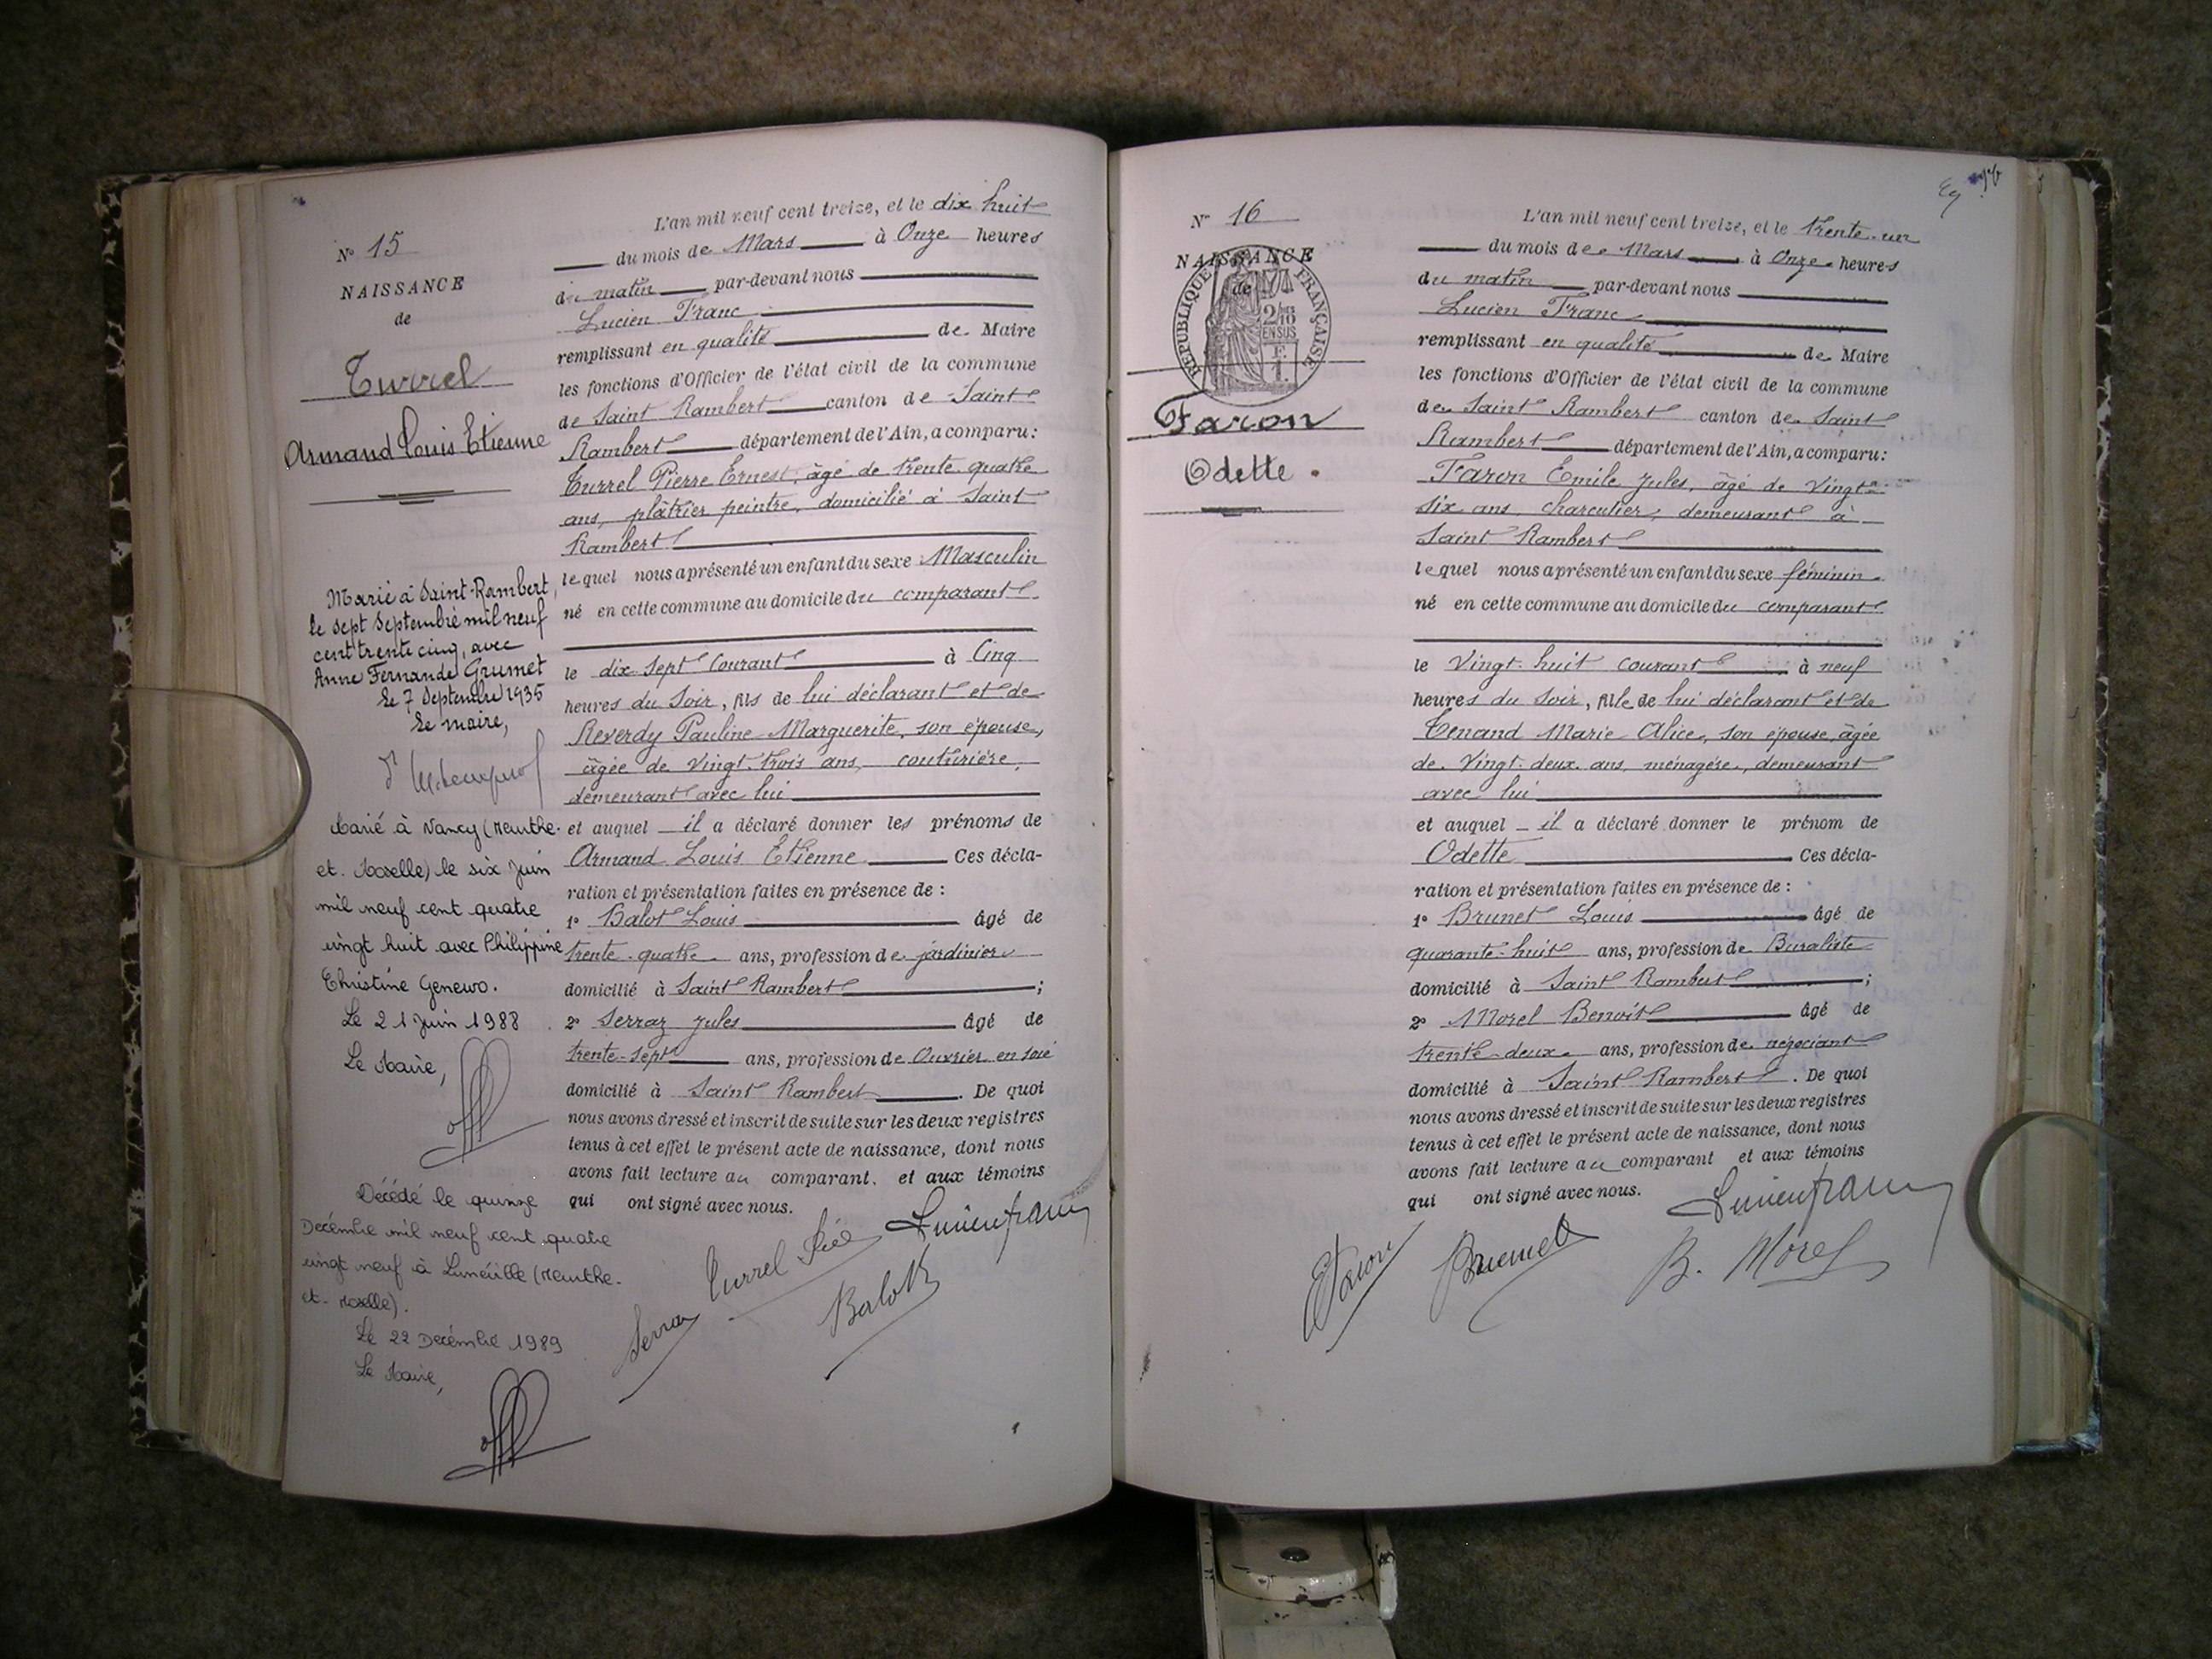 N° 15
NAISSANCE
de
Turrel
Armand Louis Etienne
Marié à Saint-Rambert,
le sept Septembre mil neuf
cent trente cinq, avec
Anne Fernande Grumet
Le 7 Septembre 1935
Le maire,
Marié à Nancy (Meurthe-
et-Moselle) le six Juin
mil neuf cent quatre
vingt huit avec Philippine
Christine Genewo.
Le 21 Juin 1988
Le Maire,
Décédé le quinze
Decémbre mil neuf cent quatre
vingt neuf à Lunéville (Meurthe-
et-Moselle).
Le 22 Decémbre 1989
Le Maire,
L'an mil neuf cent treize, et le dix huit
du mois de Mars à Onze heures
du matin par-devant nous
Lucien Franc
remplissant en qualité de Maire
les fonctions d'Officier de l'état civil de la commune
de Saint Rambert canton de Saint
Rambert département de l'Ain, a comparu:
Turrel Pierre Ernest, âgé de trente-quatre
ans, plâtrier peintre, domicilié à Saint
Rambert
lequel nous a présenté un enfant du sexe Masculin
né en cette commune au domicile du comparant
le dix sept courant à Cinq
heures du Soir, fils de lui déclarant et de
Reverdy Pauline Marguerite, son épouse,
âgée de Vingt-trois ans, couturière,
demeurant avec lui
et auquel il a déclaré donner les prénoms de
Armand Louis Etienne Ces décla-
ration et présentation faites en présence de :
1° Balot Louis âgé de
trente-quatre ans, profession de jardinier
domicilié à Saint Rambert ;
2° Serraz Jules âgé de
trente-sept ans, profession de Ouvrier en soie
domicilié à Saint Rambert . De quoi
nous avons dressé et inscrit de suite sur les deux registres
tenus à cet effet le présent acte de naissance, dont nous
avons fait lecture au comparant. et aux témoins
qui ont signé avec nous.
Lucien franc
Turrel
Balot
Serraz
N° 16
NAISSANCE
de
REPUBLIQUE FRANÇAISE
2/10
EN SUS
Faron
Odette .
L'an mil neuf cent treize, et le trente-un
du mois de Mars à Onze heures
du matin par-devant nous
Lucien Franc
remplissant en qualité de Maire
les fonctions d'Officier de l'état civil de la commune
de Saint Rambert canton de Saint
Rambert département de l'Ain, a comparu:
Faron Emile Jules, âgé de Vingt-
six ans, charcutier, demeurant à
Saint Rambert
lequel nous a présenté un enfant du sexe féminin
né en cette commune au domicile du comparant
le Vingt-huit courant à neuf
heures du Soir, fille de lui déclarant et de
Tenand Marie Alice, son épouse, âgée
de Vingt-deux ans, ménagère, demeurant
avec lui
et auquel il a déclaré donner le prénom de
Odette Ces décla-
ration et présentation faites en présence de :
1° Brunet Louis âgé de
quarante-huit ans, profession de Buraliste
domicilié à Saint Rambert ;
2° Morel Benoît âgé de
trente-deux ans, profession de négociant
domicilié à Saint Rambert . De quoi
nous avons dressé et inscrit de suite sur les deux registres
tenus à cet effet le présent acte de naissance, dont nous
avons fait lecture au comparant et aux témoins
qui ont signé avec nous.
Lucien franc
E Faron
Brunet
B. Morel